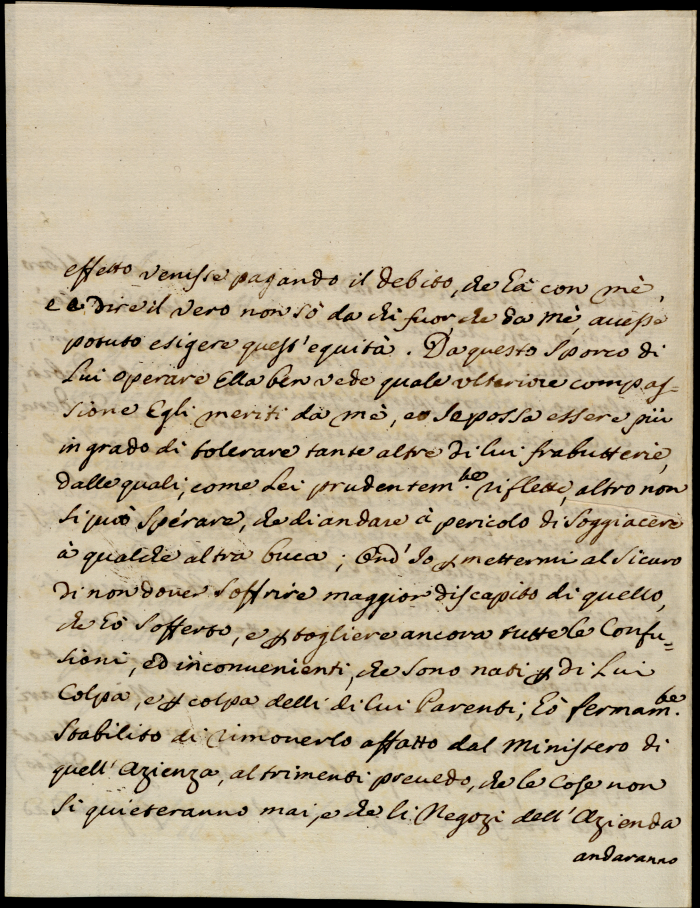 effetto venisse pagando il debito, che hà con mè,
e a dire il vero non sò da chi fuor, che da mè, avesse
potuto esigere quest'equità. Da questo sporco di
Lui operare Ella ben vede quale ulteriore compas=
sione Egli meriti da mè, e se possa essere più
in grado di tolerare tante altre di lui frabutterie,
dalle quali, come Lei prudentem.te riflette, altro non
si può sperare, che di andare à pericolo di soggiacere
à qualche altra buca; Ond'Io p mettermi al sicuro
di non dover soffrire maggior discapito di quello,
che hò sofferto, e p togliere ancora tutte le Confu=
sioni, ed inconvenienti, che sono nati p di Lui
Colpa, e p colpa delli di lui Parenti; hò fermam.te
stabilito di rimoverlo affatto dal Ministero di
quell'Azienza, altrimenti prevedo, che le Cose non
si quieteranno mai, e che li Negozi dell'Azienda
andaranno